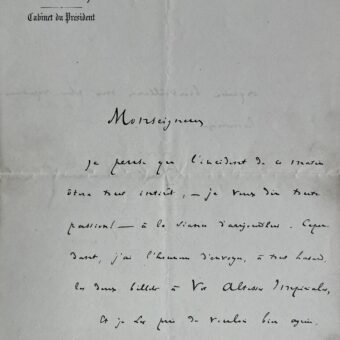 Cabinet du Président
Monseigneur
je pense que l'incident de ce matin
ôtera tout intérêt, — je veux dire tout
passionné — à la séance d'aujourd'hui. Cepen
dant, j'ai l'honneur d'envoyer, à tout hasard,
les deux billets à Vos Altesses Impériales,
Et je Les prie de vouloir bien agréer